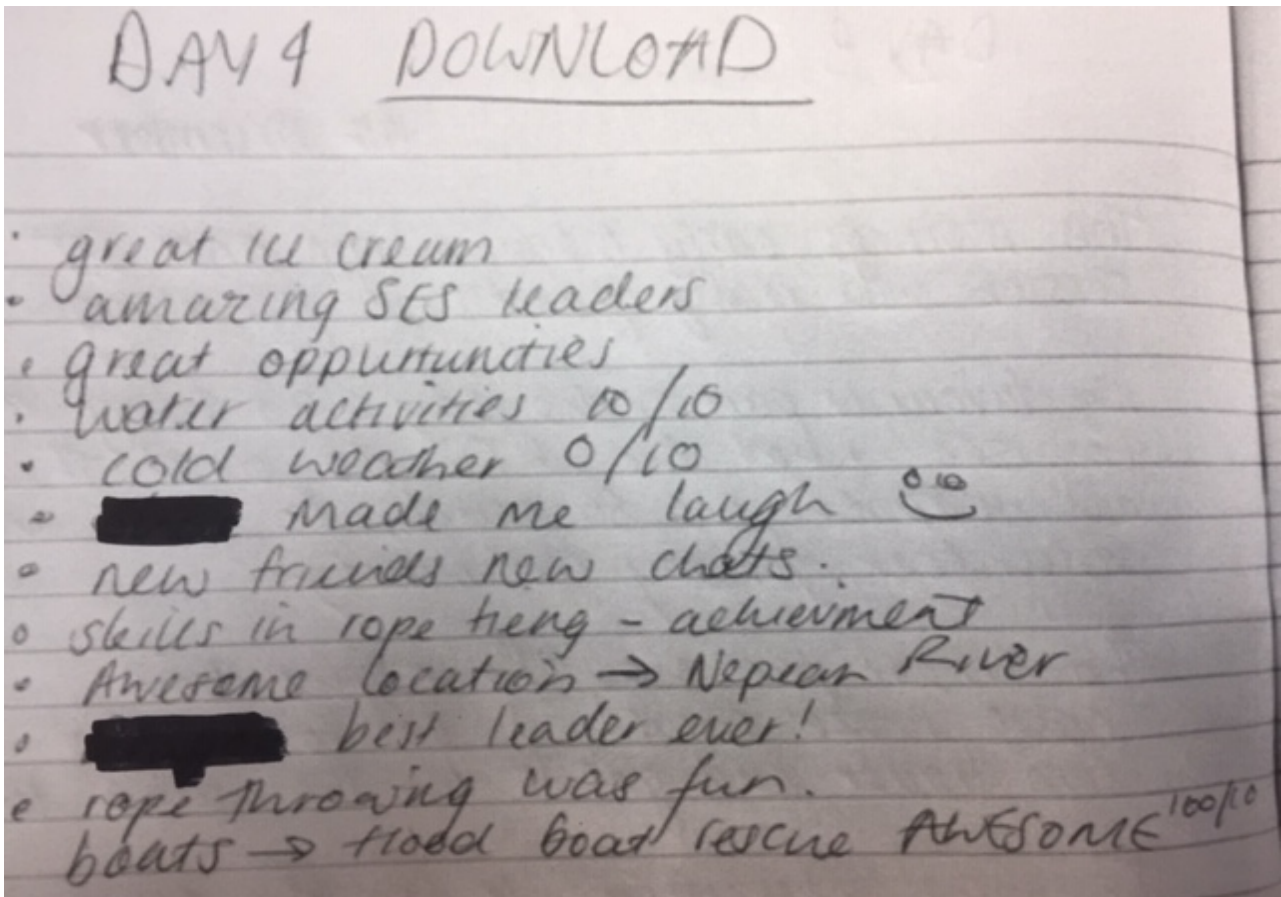 DAY 4 DOWNLOAD
• great ice cream
• amazing SES leaders
• great oppurtunities
• water activities 10/10
• cold weather 0/10
• made me laugh
• new friends new chats.
• skills in rope tieng - achievment
• Awesome location → Nepean River
• best leader ever!
• rope throwing was fun.
boats → flood boat rescue AWESOME 100/10